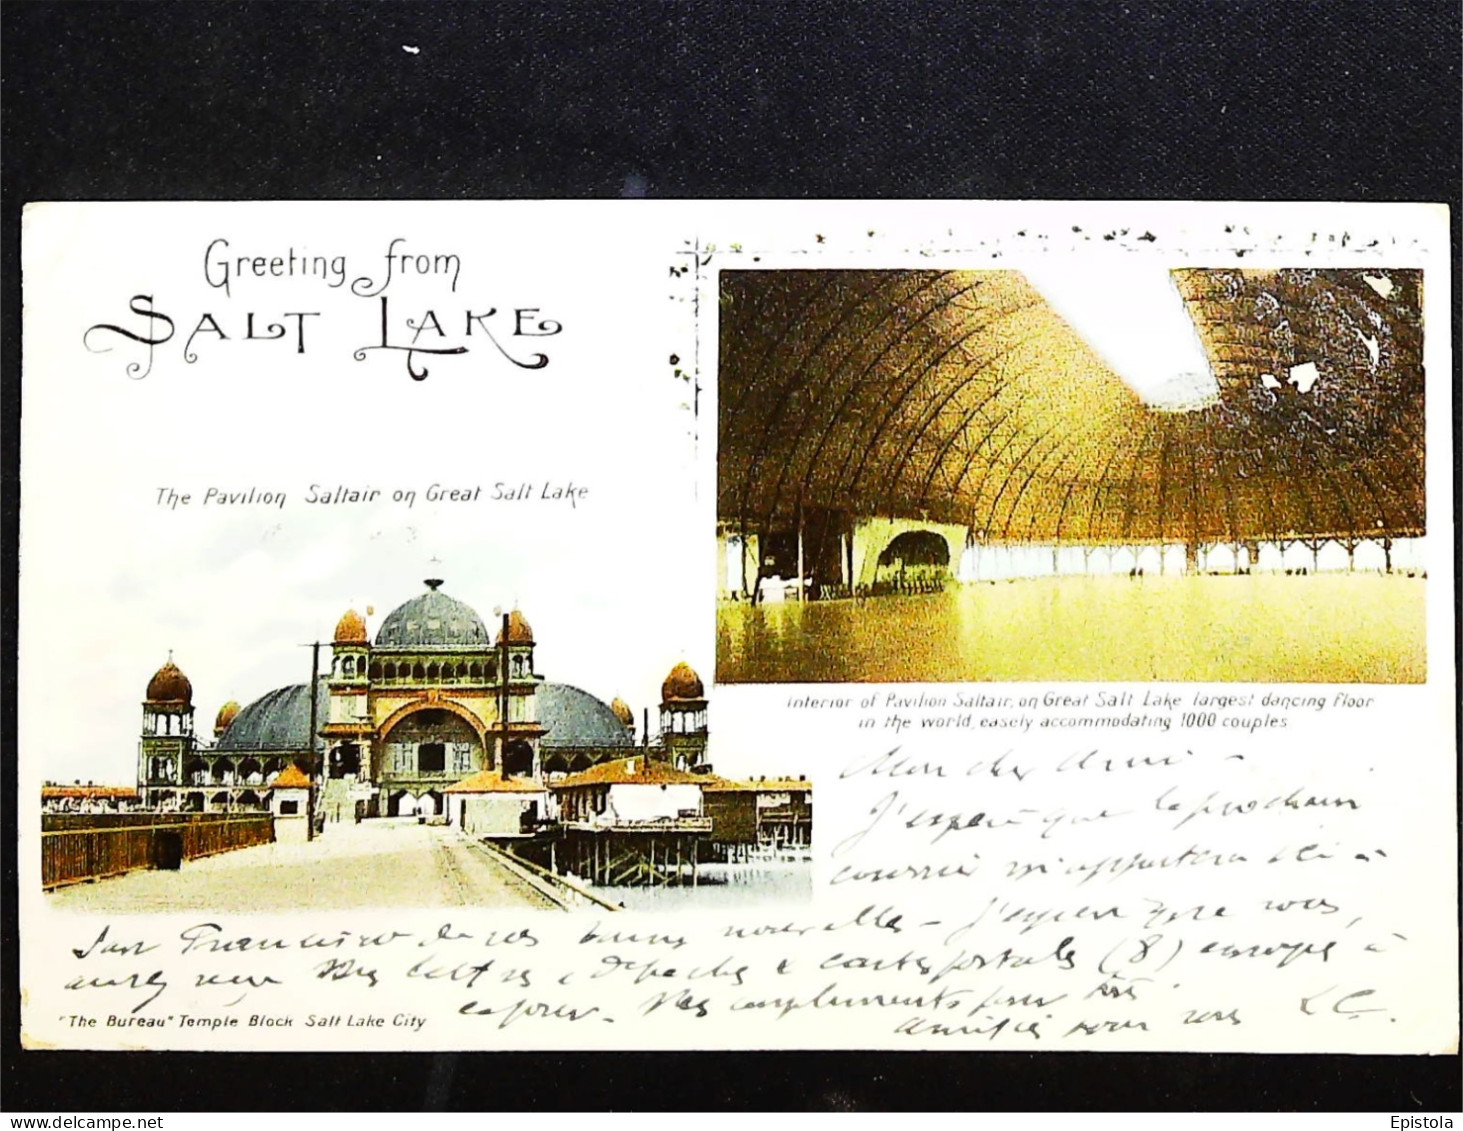 Greeting from
SALT LAKE
The Pavilion Saltair on Great Salt Lake
Interior of Pavilion Saltair, on Great Salt Lake largest dancing floor
in the world, easely accommodating 1000 couples
Mon cher Ami -
J'espère que le prochain
courrier m'apportera ici à
San Francisco de vos bonnes nouvelles - J'espère que vous
aurez reçu mes lettres, dépêches & cartes postales (8) envoyés à
mes compliments pour
amitiés pour vous L C.
"The Bureau" Temple Block Salt Lake City
delcampe.net
Epistola